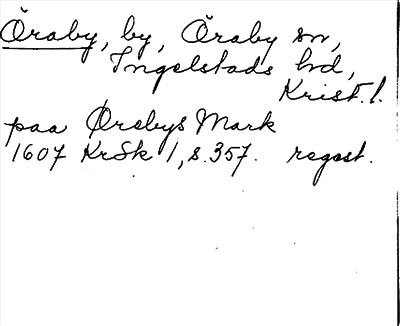 Öraby, by, Öraby sn,
Ingelstads hd,
Krist. l.
paa Ørebys Mark
1607 KrSk 1, s. 357. regest.